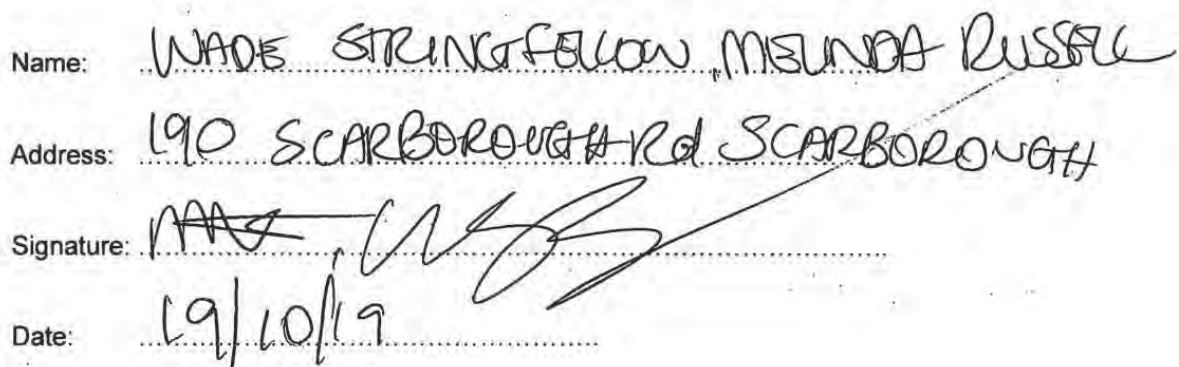 Name: WADE STRINGFELLOW, MELINDA RUSSELL
Address: 190 SCARBOROUGH Rd SCARBOROUGH
Signature:
Date: 19/10/19